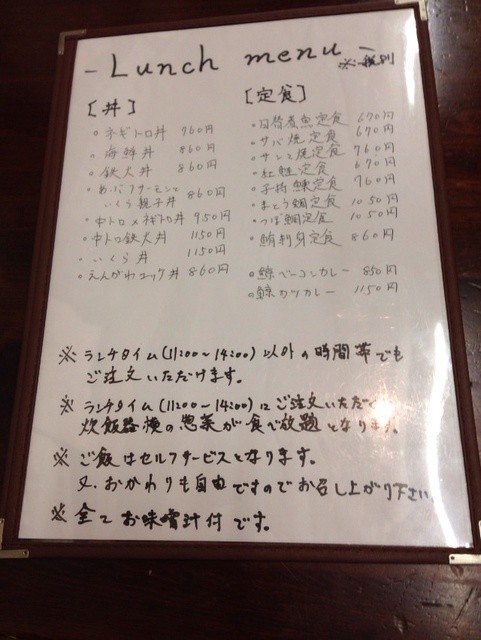 - Lunch menu -
※税別
[丼]
・ネギトロ丼 760円
・海鮮丼 860円
・鉄火丼 860円
・あぶりサーモンの
いくら親子丼 860円
・中トロ×ネギトロ丼 950円
・中トロ鉄火丼 1150円
・いくら丼 1150円
・えんがわユッケ丼 860円
[定食]
・日替煮魚定食 670円
・サバ焼定食 670円
・サンマ焼定食 760円
・紅鮭定食 670円
・子持鰊定食 760円
・まとう鯛定食 1050円
・つぼ鯛定食 1050円
・鮪刺身定食 860円
・鯨ベーコンカレー 850円
・鯨カツカレー 1150円
※ ランチタイム(11:00～14:00)以外の時間帯でも
ご注文いただけます。
※ ランチタイム(11:00～14:00)にご注文いただくと
炊飯器横の惣菜が食べ放題となります。
※ ご飯はセルフサービスとなります。
又、おかわりも自由ですのでお召し上がり下さい。
※ 全てお味噌汁付です。